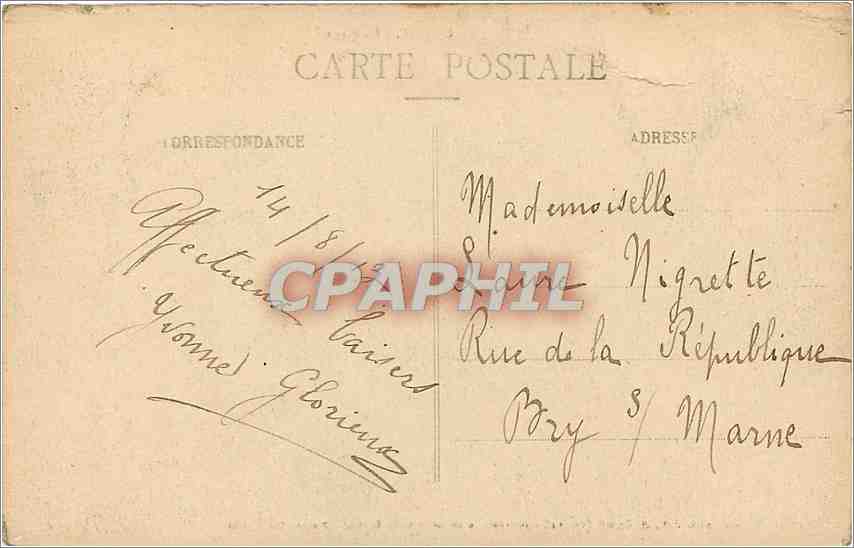 CARTE POSTALE
CORRESPONDANCE
ADRESSE
14/8/12
Affectueux baisers
Yvonne Glorieux
Mademoiselle
Laure Nigrette
Rue de la République
Bry s/ Marne
CPAPHIL